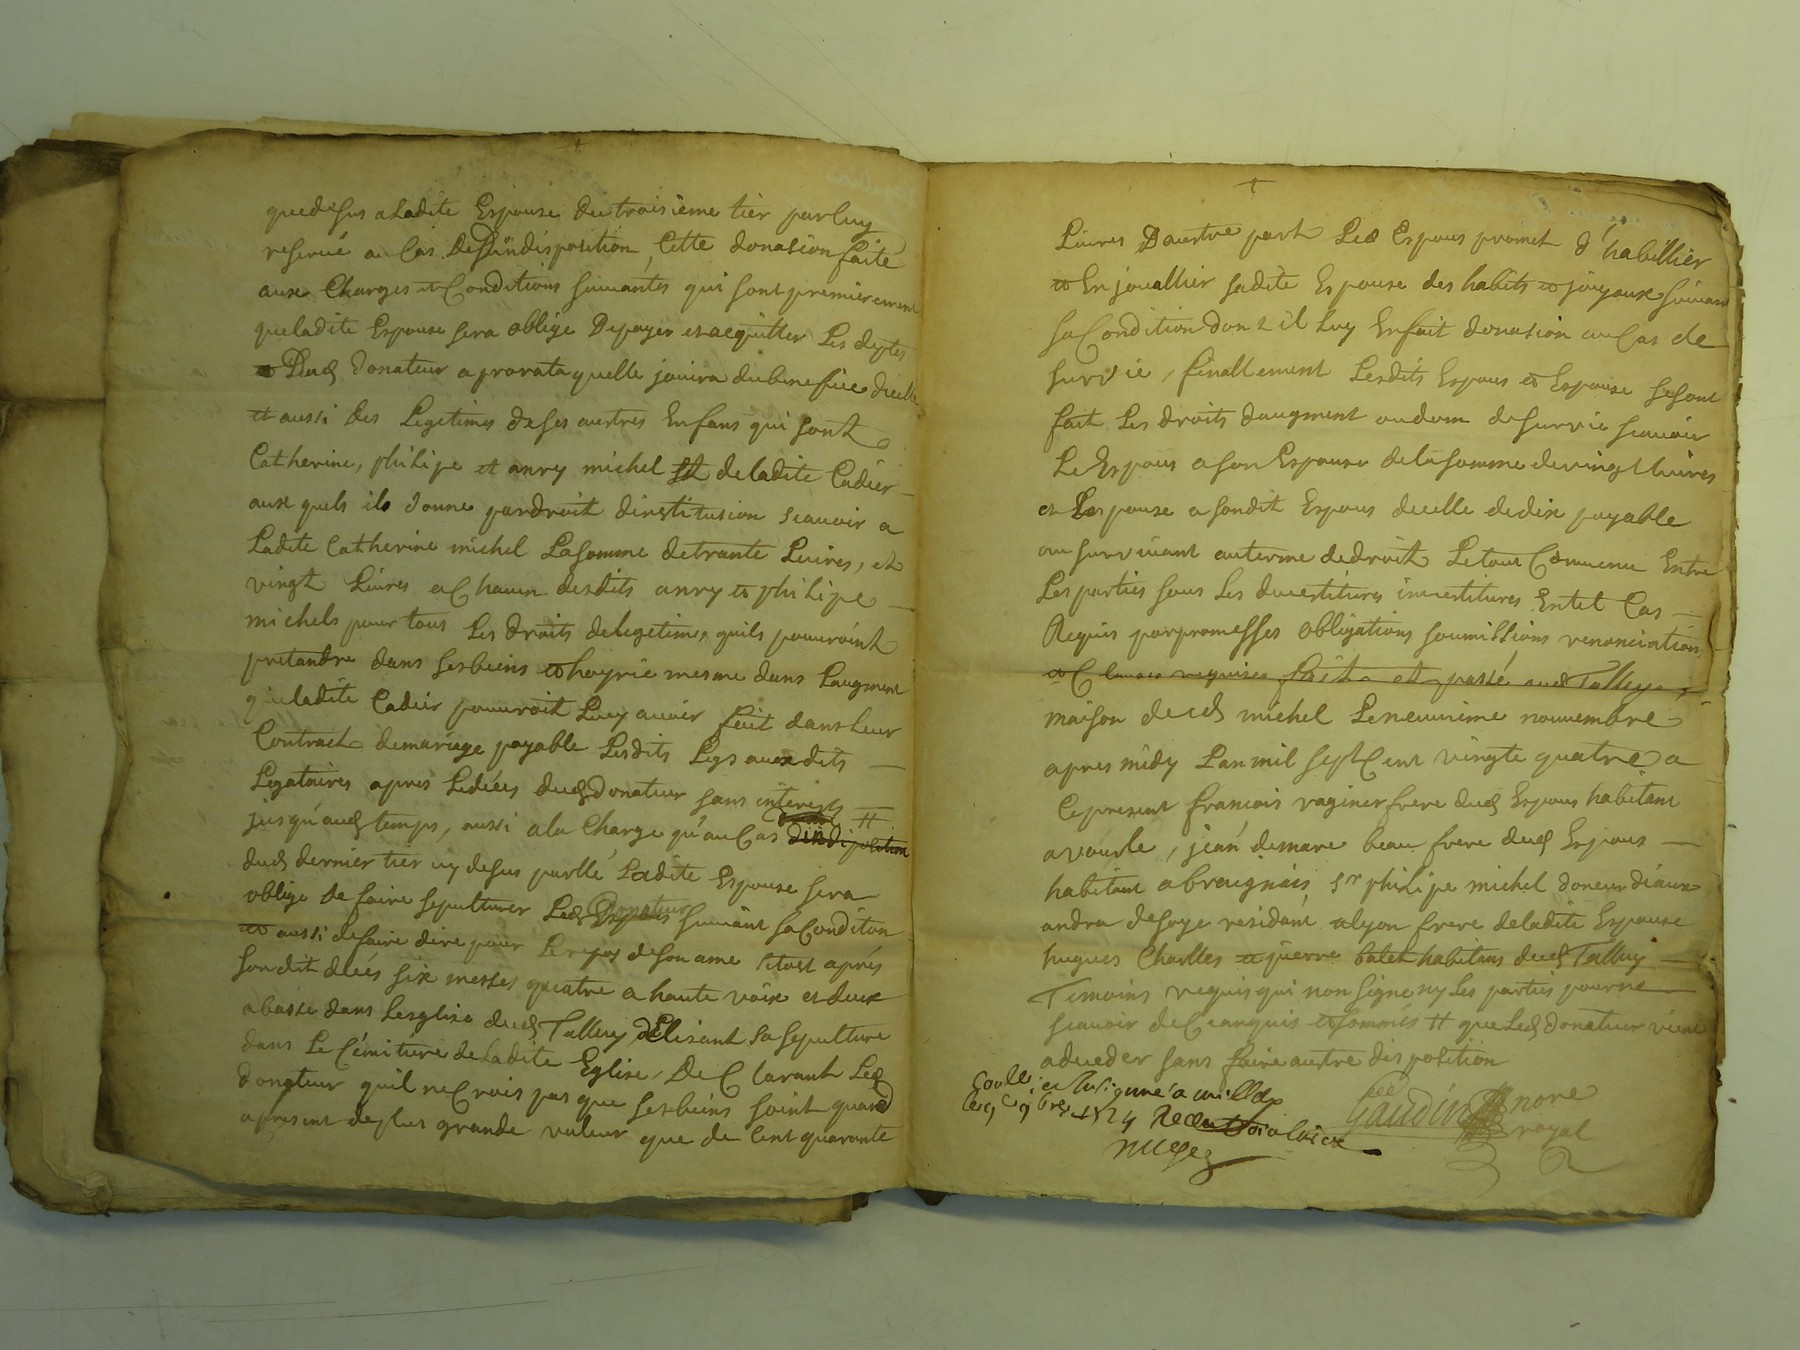 que desus a Ladite Espouse du troisieme tier par luy
reservé au Cas de Sindisposition, Cette donasion faite
aux Charges et Conditions suivantes qui sont premierement
que ladite Espouse sera obligé De payer et acquitter Les deptes
Dud donateur a prorata quelle jouira du benefice dicelle
et aussi des Legetimes de ses autres Enfans qui sont
Catherine, philipe et anry michel et de ladite Cadier
aux quels il donne par droit dinstitusion scavoir a
Ladite Catherine michel La somme de trante Livres, et
vingt Livres a Chacun desdits anry et philipe
michels pour tous Les droits de legetimes quils pouroint
pretandre dans ses biens et hoyrie mesme dans Laugment
que ladite Cadier pouroit Luy avoir fait dans Leur
Contract de mariage payable Lesdits Legs auxdits
Legataires apres Le déés dud donateur sans interests
jusqu'aud temps, aussi a la Charge qu'au Cas dindiposition #
dud dernier tier cy desus parllé Ladite Espouse sera
obligé de faire sepulturer Led Donateur suivant sa Conditon
et aussi de faire dire pour Le repos de son ame sitost aprés
son dit déés six messes quatre a haute voix et deux
a basse dans Lesglise dud Talluy, Elisant sa sepulture
dans Le Cémitiere de Ladite Eglise, De Clarant Led
donateur quil ne Crois pas que ses biens soint quand
apresent de plus grande valeur que de Cent quarante
Livres D'autre part Led Espous promet d'habillier
et En jouallier sadite Espouse des habits et joyaux suivant
sa Condition dont il Luy En fait donasion au Cas de
survie, finallement Lesdits Espous et Espouse se sont
fait Les droits daugment ou don de survie scavoir
Le Espous a son Espouse de la somme de vingt livres
et Lespouse a son dit Espous dicelle de dix payable
au survivant au terme de droit Le tout Convenu Entre
Les parties sous Les devestitures investitures En tel Cas
Requis par promesses obligations soumissions renonciations
et Clauses requises fait et passé aud Talluy,
maison dud michel Le neuvième nouvembre
apres midy Lan mil sept Cent vingte quatre a
Ce present francois raginer frere dud Espous habitant
a vourle, jean demare beau frere dud Espous
habitant a braignais Sr philipe michel doneur diaux
andra de soye residant a lyon frere de ladite Espouse
hugues Charlles et pierre balet habitans dud Talluy
Temoins requis qui non signe ny Les parties pour ne
scavoir de Ce anquis et sommés # que Led donateur vient
a deceder sans faire autre disposition
Gaudin nore
royal